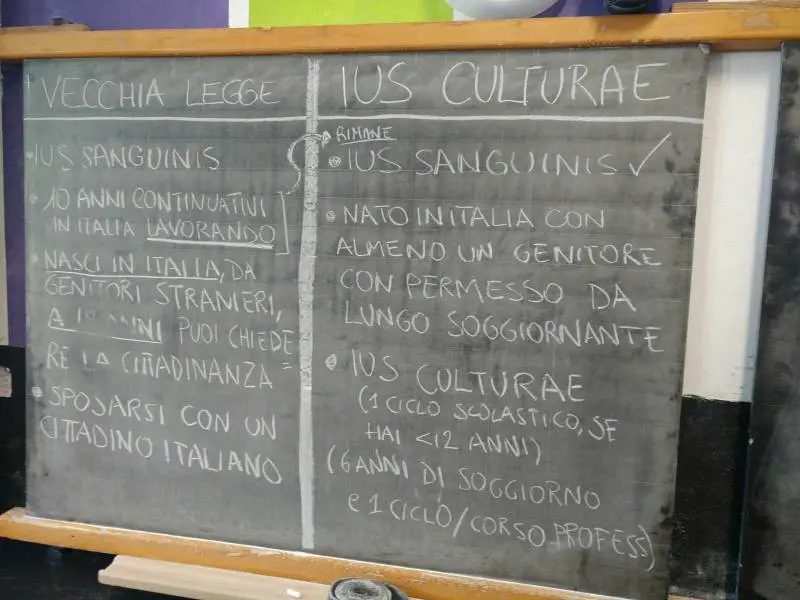 VECCHIA LEGGE
• IUS SANGUINIS
• 10 ANNI CONTINUATIVI
IN ITALIA LAVORANDO
• NASCI IN ITALIA, DA
GENITORI STRANIERI,
A ANNI PUOI CHIEDE=
RE LA CITTADINANZA
• SPOSARSI CON UN
CITTADINO ITALIANO
IUS CULTURAE
RIMANE
• IUS SANGUINIS ✓
• NATO IN ITALIA CON
ALMENO UN GENITORE
CON PERMESSO DA
LUNGO SOGGIORNANTE
• IUS CULTURAE
(1 CICLO SCOLASTICO, SE
HAI <12 ANNI)
(6 ANNI DI SOGGIORNO
e 1 CICLO/CORSO PROFESS)